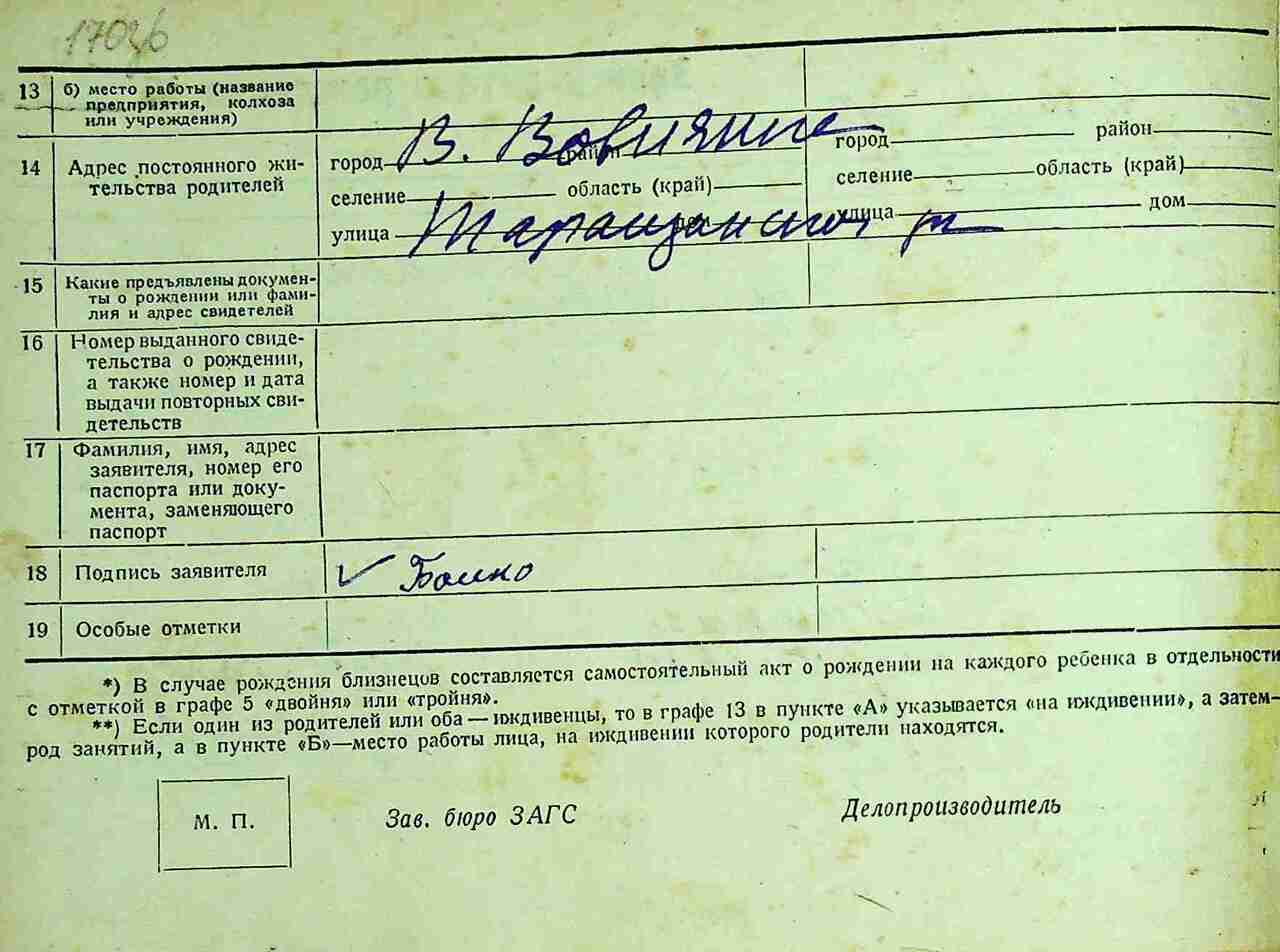 170276
13 б) место работы (название предприятия, колхоза или учреждения)
14 Адрес постоянного жительства родителей
город В. Вовнянка район
селение область (край)
улица Таращанского р дом
город район
селение область (край)
улица дом
15 Какие предъявлены документы о рождении или фамилия и адрес свидетелей
16 Номер выданного свидетельства о рождении, а также номер и дата выдачи повторных свидетельств
17 Фамилия, имя, адрес заявителя, номер его паспорта или документа, заменяющего паспорт
18 Подпись заявителя ✓ Бойко
19 Особые отметки
*) В случае рождения близнецов составляется самостоятельный акт о рождении на каждого ребенка в отдельности
с отметкой в графе 5 «двойня» или «тройня».
**) Если один из родителей или оба — иждивенцы, то в графе 13 в пункте «А» указывается «на иждивении», а затем—
род занятий, а в пункте «Б»—место работы лица, на иждивении которого родители находятся.
М. П. Зав. бюро ЗАГС Делопроизводитель